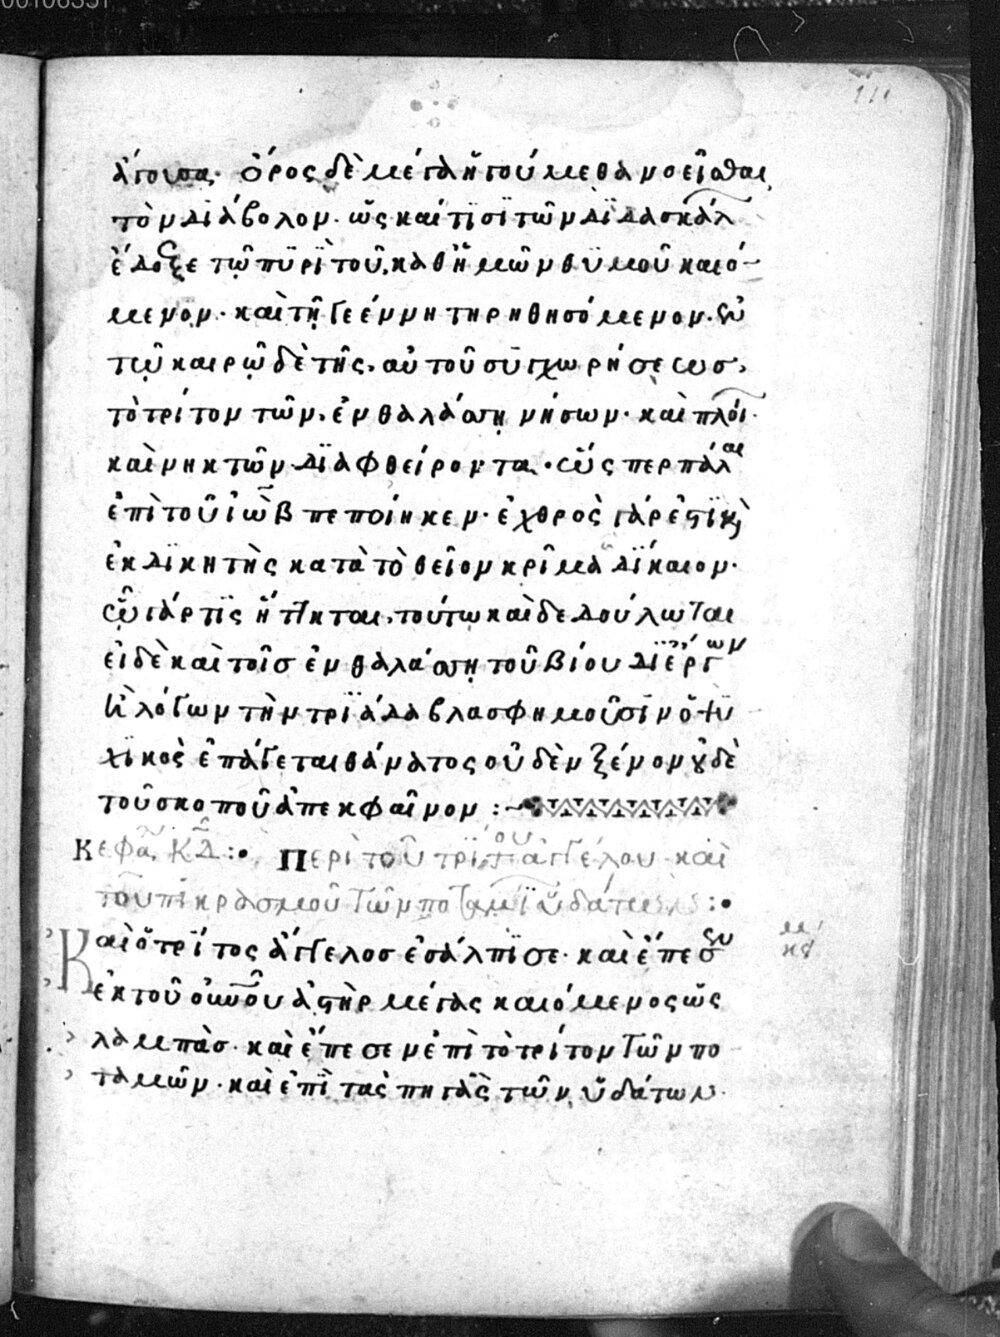 00106351
111
ἄγουσα· ὄρος δὲ μέγα ἡγούμεθα νοεῖσθαι
τὸν διάβολον· ὥς καί τισι τῶν διδασκάλ
ἔδοξε τῷ πυρὶ τοῦ καθ ἡμῶν θυμοῦ καιό-
μενον· καὶ τῇ γεέννῃ τηρηθησόμενον· ἐν
τῷ καιρῷ δὲ τῆς αὐτοῦ συγχωρήσεως,
τὸ τρίτον τῶν ἐν θαλάσσῃ νήσων· καὶ πλοί·
καὶ νηκτῶν διαφθείροντα· ὥς περ πάλαι
ἐπὶ τοῦ ἰὼβ πεποίηκεν· ἐχθρὸς γάρ ἐστι κ
ἐκδικητὴς κατὰ τὸ θεῖον κρῖμα δίκαιον·
ᾧ γάρ τις ἥττηται, τούτω καὶ δεδούλωται
εἰ δὲ καὶ τοῖσ ἐν θαλάσσῃ τοῦ βίου δι ἔργων
κ λόγων τὴν τριάδα βλασφημοῦσιν ὁ ψυ
χικὸς ἐπάγεται θάνατος οὐδὲν ξένον οὐδὲ
τοῦ σκοποῦ ἀπεκφαῖνον :~
Κεφα ΚΔ :• Περὶ τοῦ τρίτου ἀγγέλου καὶ
τοῦ πικρασμοῦ τῶν ποταμί ὑδάτων :•
Καὶ ὁ τρίτος ἄγγελοσ ἐσάλπισε· καὶ ἔπεσεν
ἐκ τοῦ οὐνοῦ ἀστὴρ μέγας καιόμενος ὥς
λαμπάσ· καὶ ἔπεσεν ἐπὶ τὸ τρίτον τῶν πο
ταμῶν· καὶ ἐπὶ τὰς πηγὰς τῶν ὑδάτων·